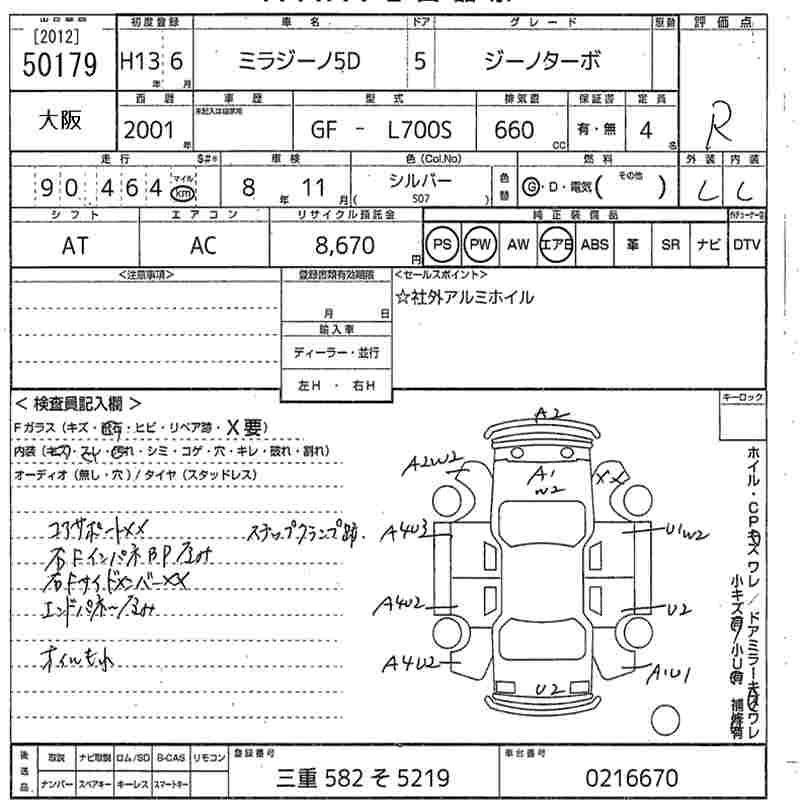 [2012]
50179
初度登録 車名 ドア グレード 駆動 評価点
H13 6 ミラジーノ5D 5 ジーノターボ R
年 月
大阪
西暦 車歴 型式 排気量 保証書 定員
未記入は自家用
2001 GF - L700S 660 有・無 4
年 CC 名
走行 $#* 車検 色(Col.No) 燃料 外装 内装
90,464 マイル km 8年 11月 シルバー 色替 G・D・電気( その他 ) し し
( S07 )
シフト エアコン リサイクル預託金 純正装備品
AT AC 8,670円 PS PW AW エアB ABS 革 SR ナビ DTV
<注意事項> 登録書類有効期限 <セールスポイント>
☆社外アルミホイル
月 日
輸入車
ディーラー・並行
左H ・ 右H
< 検査員記入欄 > キーロック
Fガラス(キズ・飛石・ヒビ・リペア跡・X要)
内装(キズ・スレ・汚れ・シミ・コゲ・穴・キレ・破れ・割れ)
オーディオ(無し・穴)/タイヤ(スタッドレス)
コアサポートXX ステップクランプ跡
右FインパネBP歪み
右FサイドメンバーXX
エンドパネー歪み
オイルもれ
A2
A2W2
A1
W2
XX
A4U3
U1W2
A4U2
U2
A4U2
A1U1
U2
ホイル・CPキズ ワレ / ドアミラーキズワレ
小キズ有/小U有 補修有
後送品 取説 ナビ取説 ロム/SD B-CAS リモコン 登録番号 車台番号
ナンバー スペアキー キーレス スマートキー 三重 582 そ 5219 0216670